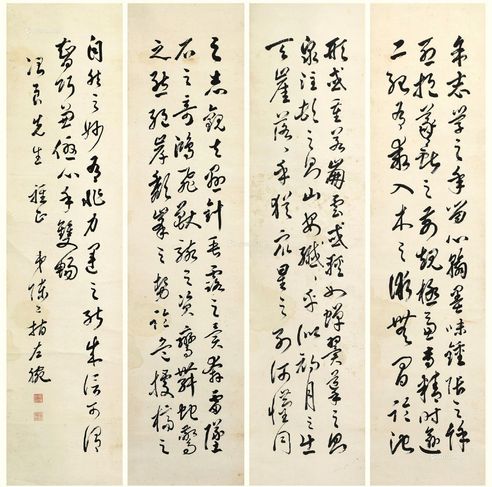 余志學之年留心翰墨味鍾張之餘
烈挹羲獻之前規極慮專精時逾
二紀有乖入木之術無間臨池
形或重若崩雲或輕如蟬翼導之則
泉注頓之則山安纖纖乎似初月之出
天崖落落乎猶眾星之列河漢同
之志觀夫懸針垂露之異奔雷墜
石之奇鴻飛獸駭之資鸞舞蛇驚
之態絕岸頹峯之勢臨危據槁之
自然之妙有非力運之能成信可謂
智巧兼優心手雙暢
先生雅正 弟陳 左腕